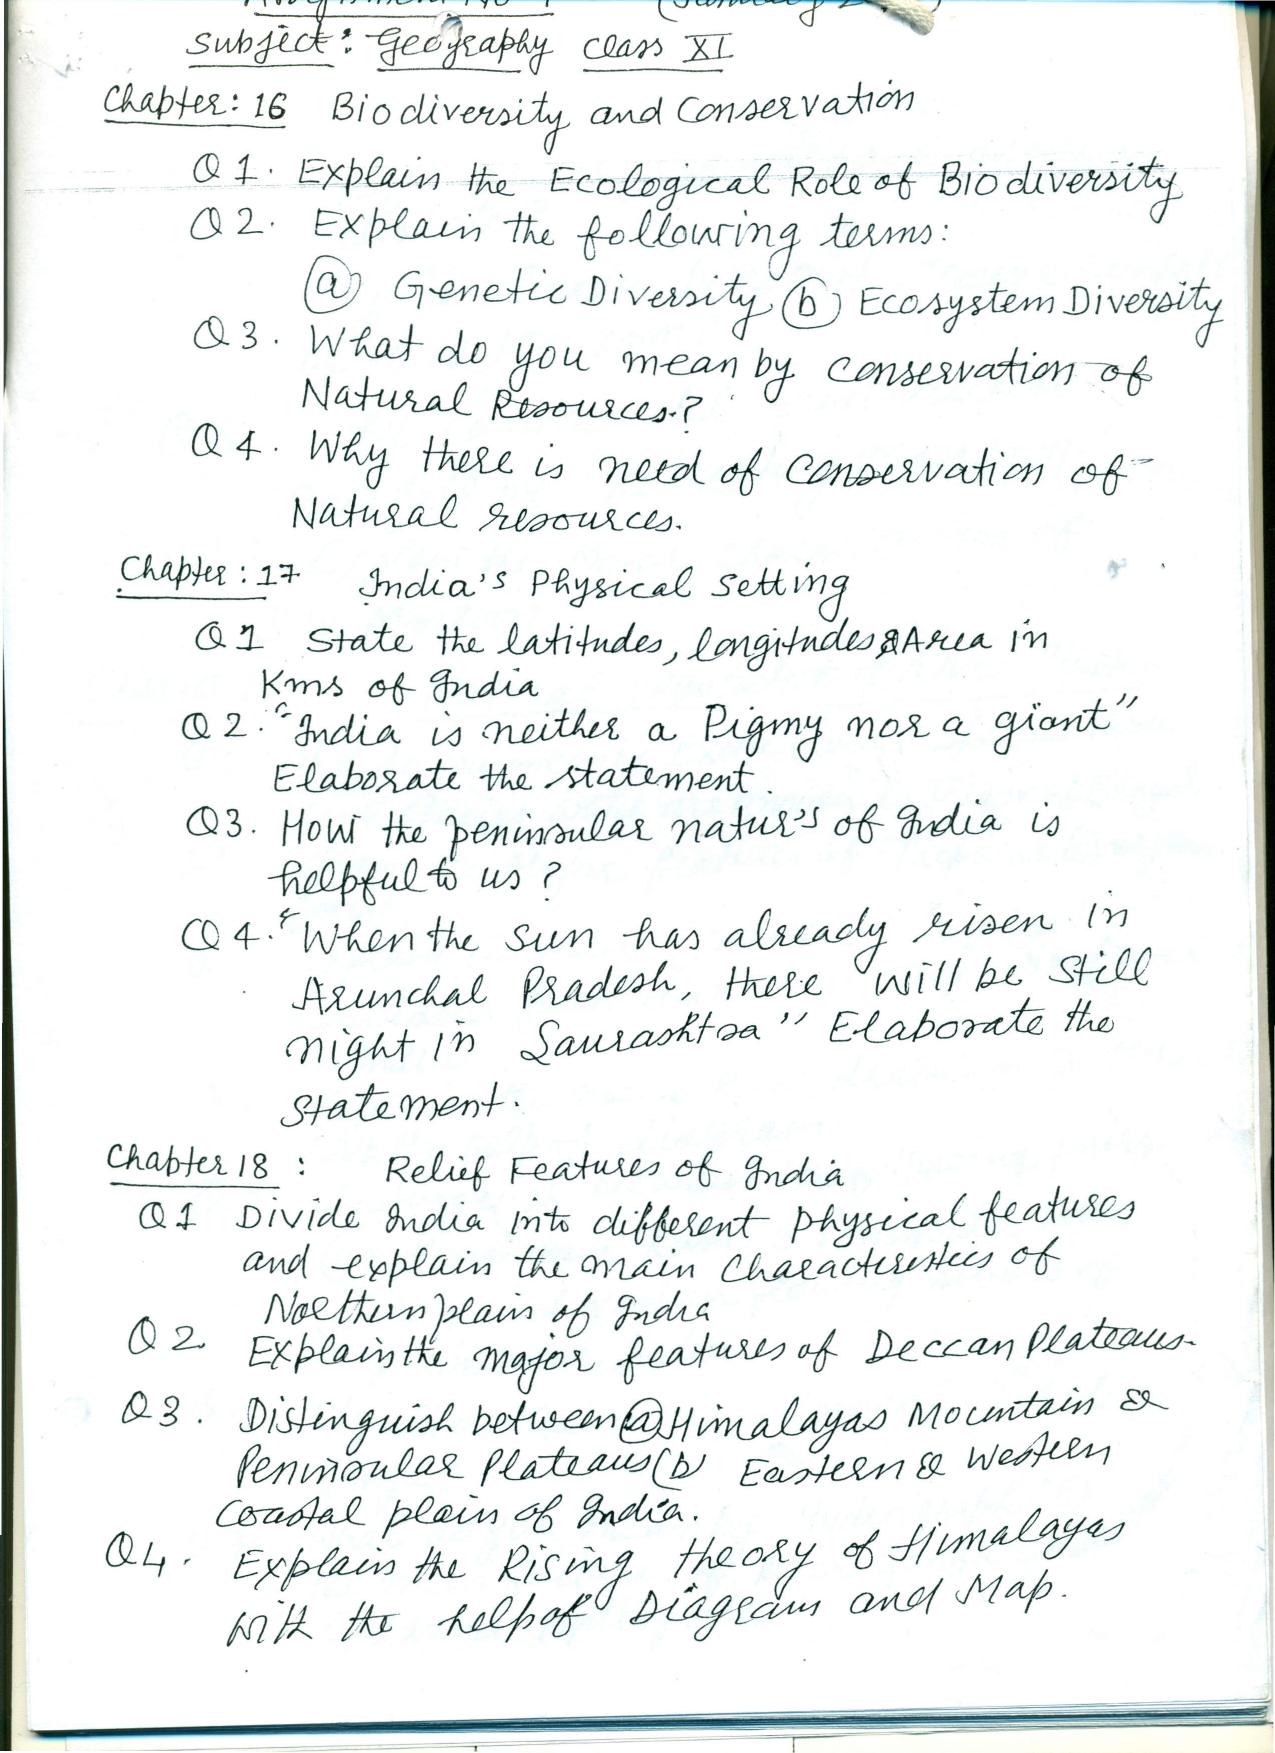 Subject: Geography Class XI
Chapter: 16 Biodiversity and Conservation
Q 1. Explain the Ecological Role of Biodiversity
Q 2. Explain the following terms:
(a) Genetic Diversity (b) Ecosystem Diversity
Q 3. What do you mean by Conservation of
Natural Resources.?
Q 4. Why there is need of Conservation of
Natural resources.
Chapter: 17 India's Physical Setting
Q 1 State the latitudes, longitudes & Area in
Kms of India
Q 2. "India is neither a Pigmy nor a giant"
Elaborate the statement.
Q3. How the peninsular natur's of India is
helpful to us ?
Q 4. "When the Sun has already risen in
Arunchal Pradesh, there will be still
night in Saurashtra" Elaborate the
statement.
Chapter 18 : Relief Features of India
Q 1 Divide India into different physical features
and explain the main Characteristics of
Northern plain of India
Q 2 Explain the major features of Deccan Plateaus.
Q 3. Distinguish between (a) Himalayas Mountain &
Peninsular Plateaus (b) Eastern & Western
coastal plain of India.
Q4. Explain the Rising theory of Himalayas
with the help of Diagram and Map.